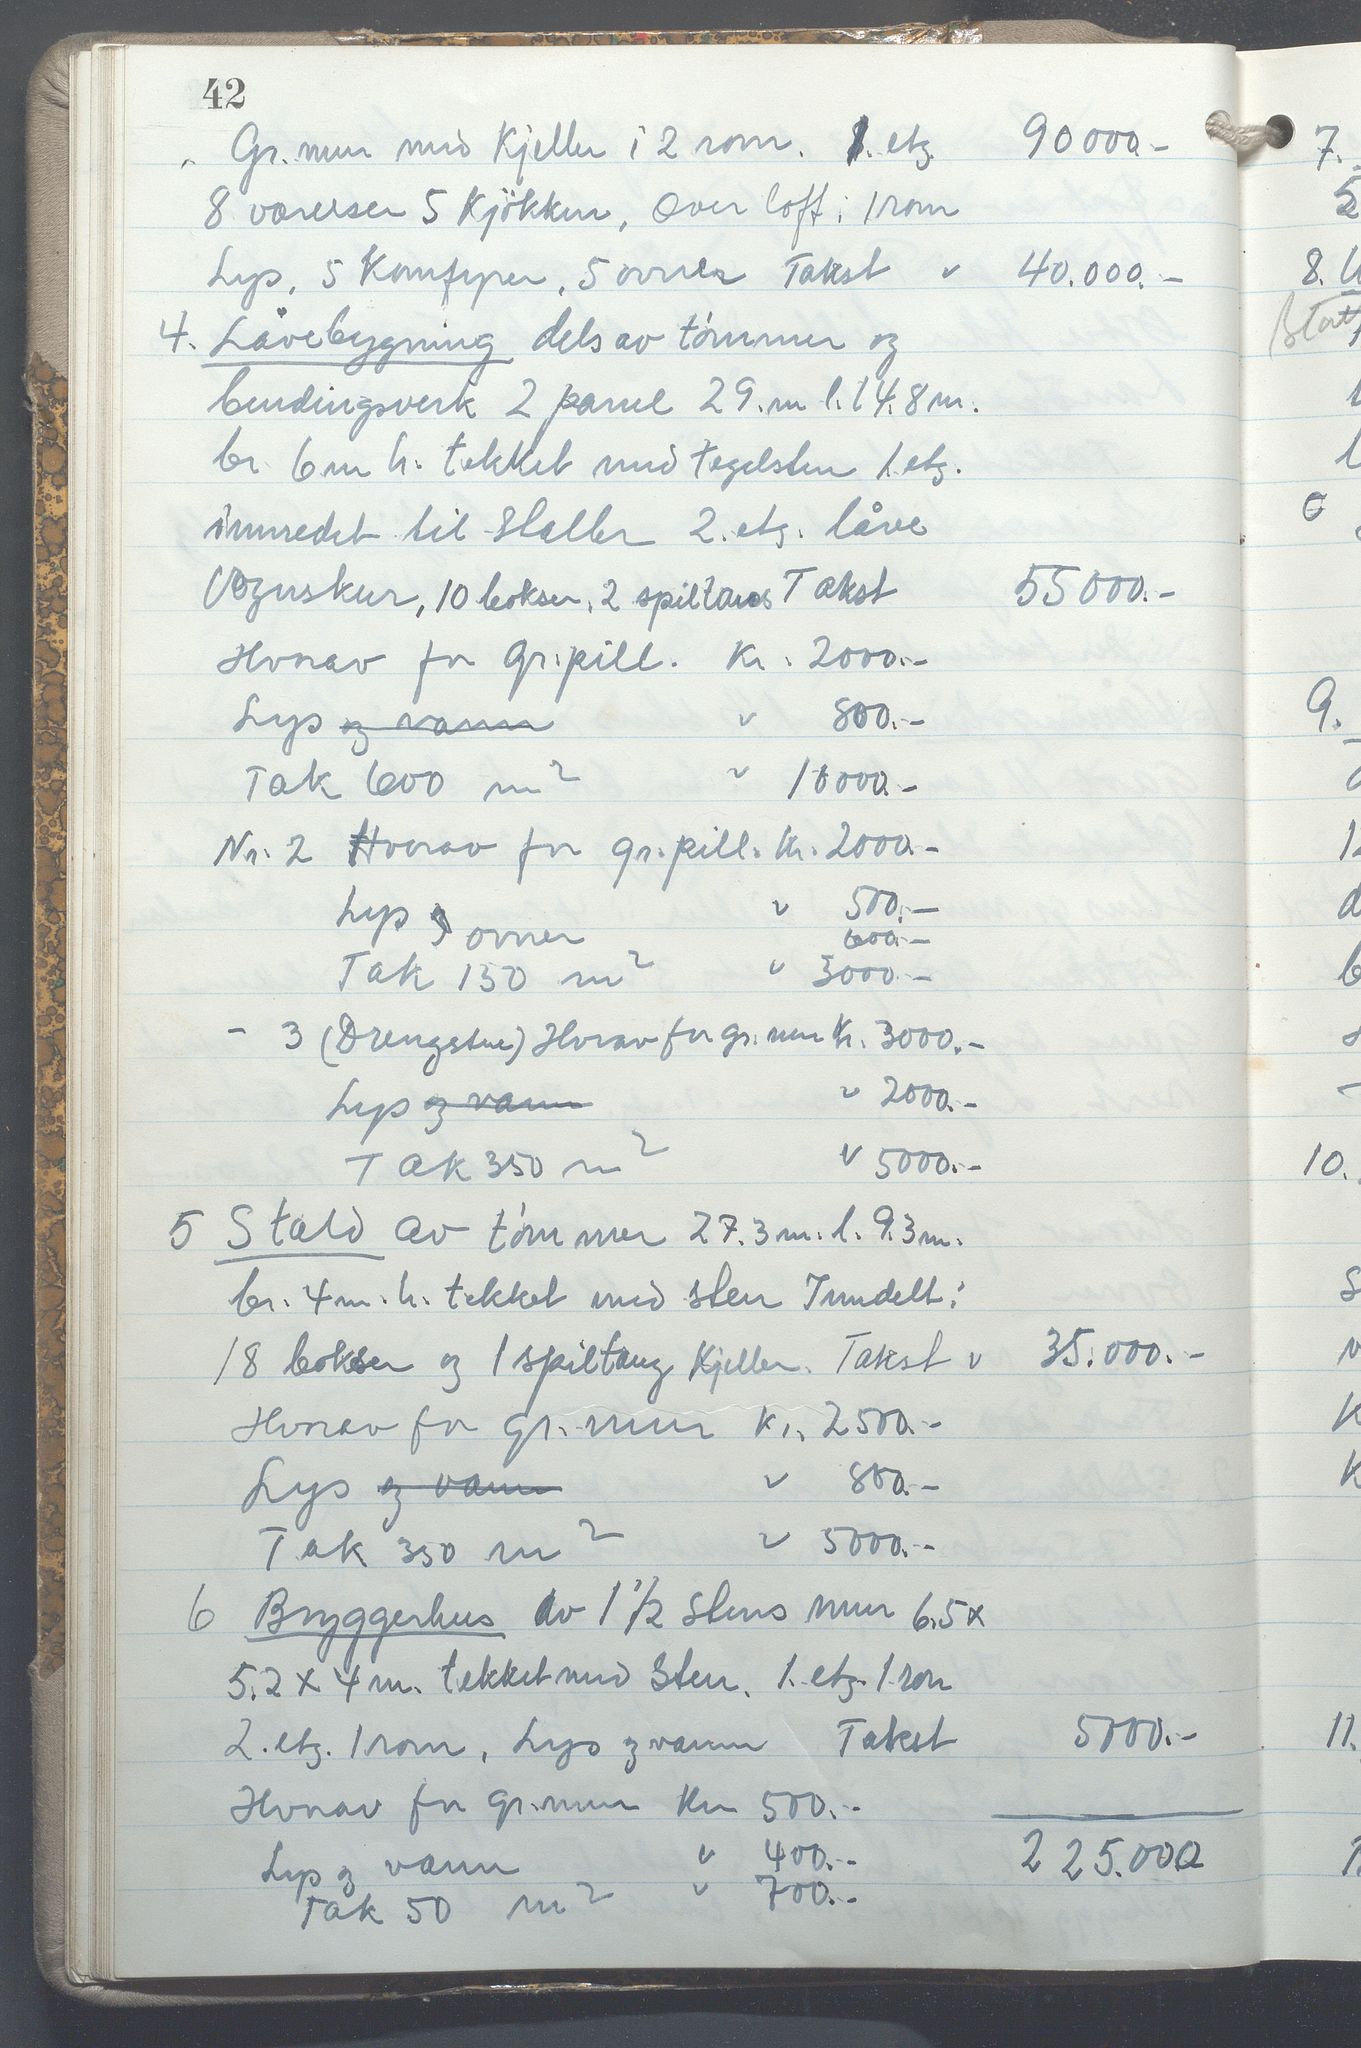 42
Gr. mur med Kjeller i 2 rom. 1. etg. 90 000.-
8 værelser 5 Kjökken, Over loft i 1 rom
Lys, 5 Komfyrer, 5 ovner Takst " 40.000.-
4. Låvebygning dels av tömmer og
bindingsverk 2 panel 29. m l. 14.8 m.
br. 6 m h. tekket med tegelsten 1. etg.
innredet til Staller 2. etg. låve
Vognskur, 10 bokser, 2 spiltaug Takst 55 000.-
Hvorav for Gr. pill. Kr. 2000.-
Lys og vann " 800.-
Tak 600 m² " 10 000.-
Nr. 2 Hvorav for gr. pill. Kr. 2000.-
Lys og " 500.-
ovner 600.-
Tak 150 m² " 3000.-
- 3 (Drengstue) Hvorav for gr. mur Kr. 3000.-
Lys og vann " 2000.-
Tak 350 m² " 5000.-
5 Stald av tömmer 27.3 m. l. 9.3 m.
br. 4 m. h. tekket med sten Inndelt i
18 bokser og 1 spiltaug Kjeller. Takst " 35.000.-
Hvorav for gr. mur Kr. 2500.-
Lys og vann " 800.-
Tak 350 m² " 5000.-
6 Bryggerhus Av 1 1/2 Stens mur 6.5 x
5.2 x 4 m. tekket med Sten. 1. etg. 1 rom
2. etg. 1 rom, Lys og vann Takst 5000.-
Hvorav for Gr. mur Kr 500.-
Lys og vann " 400.- 225.000
Tak 50 m² " 700.-
7.
5
8.
9.
10.
11.